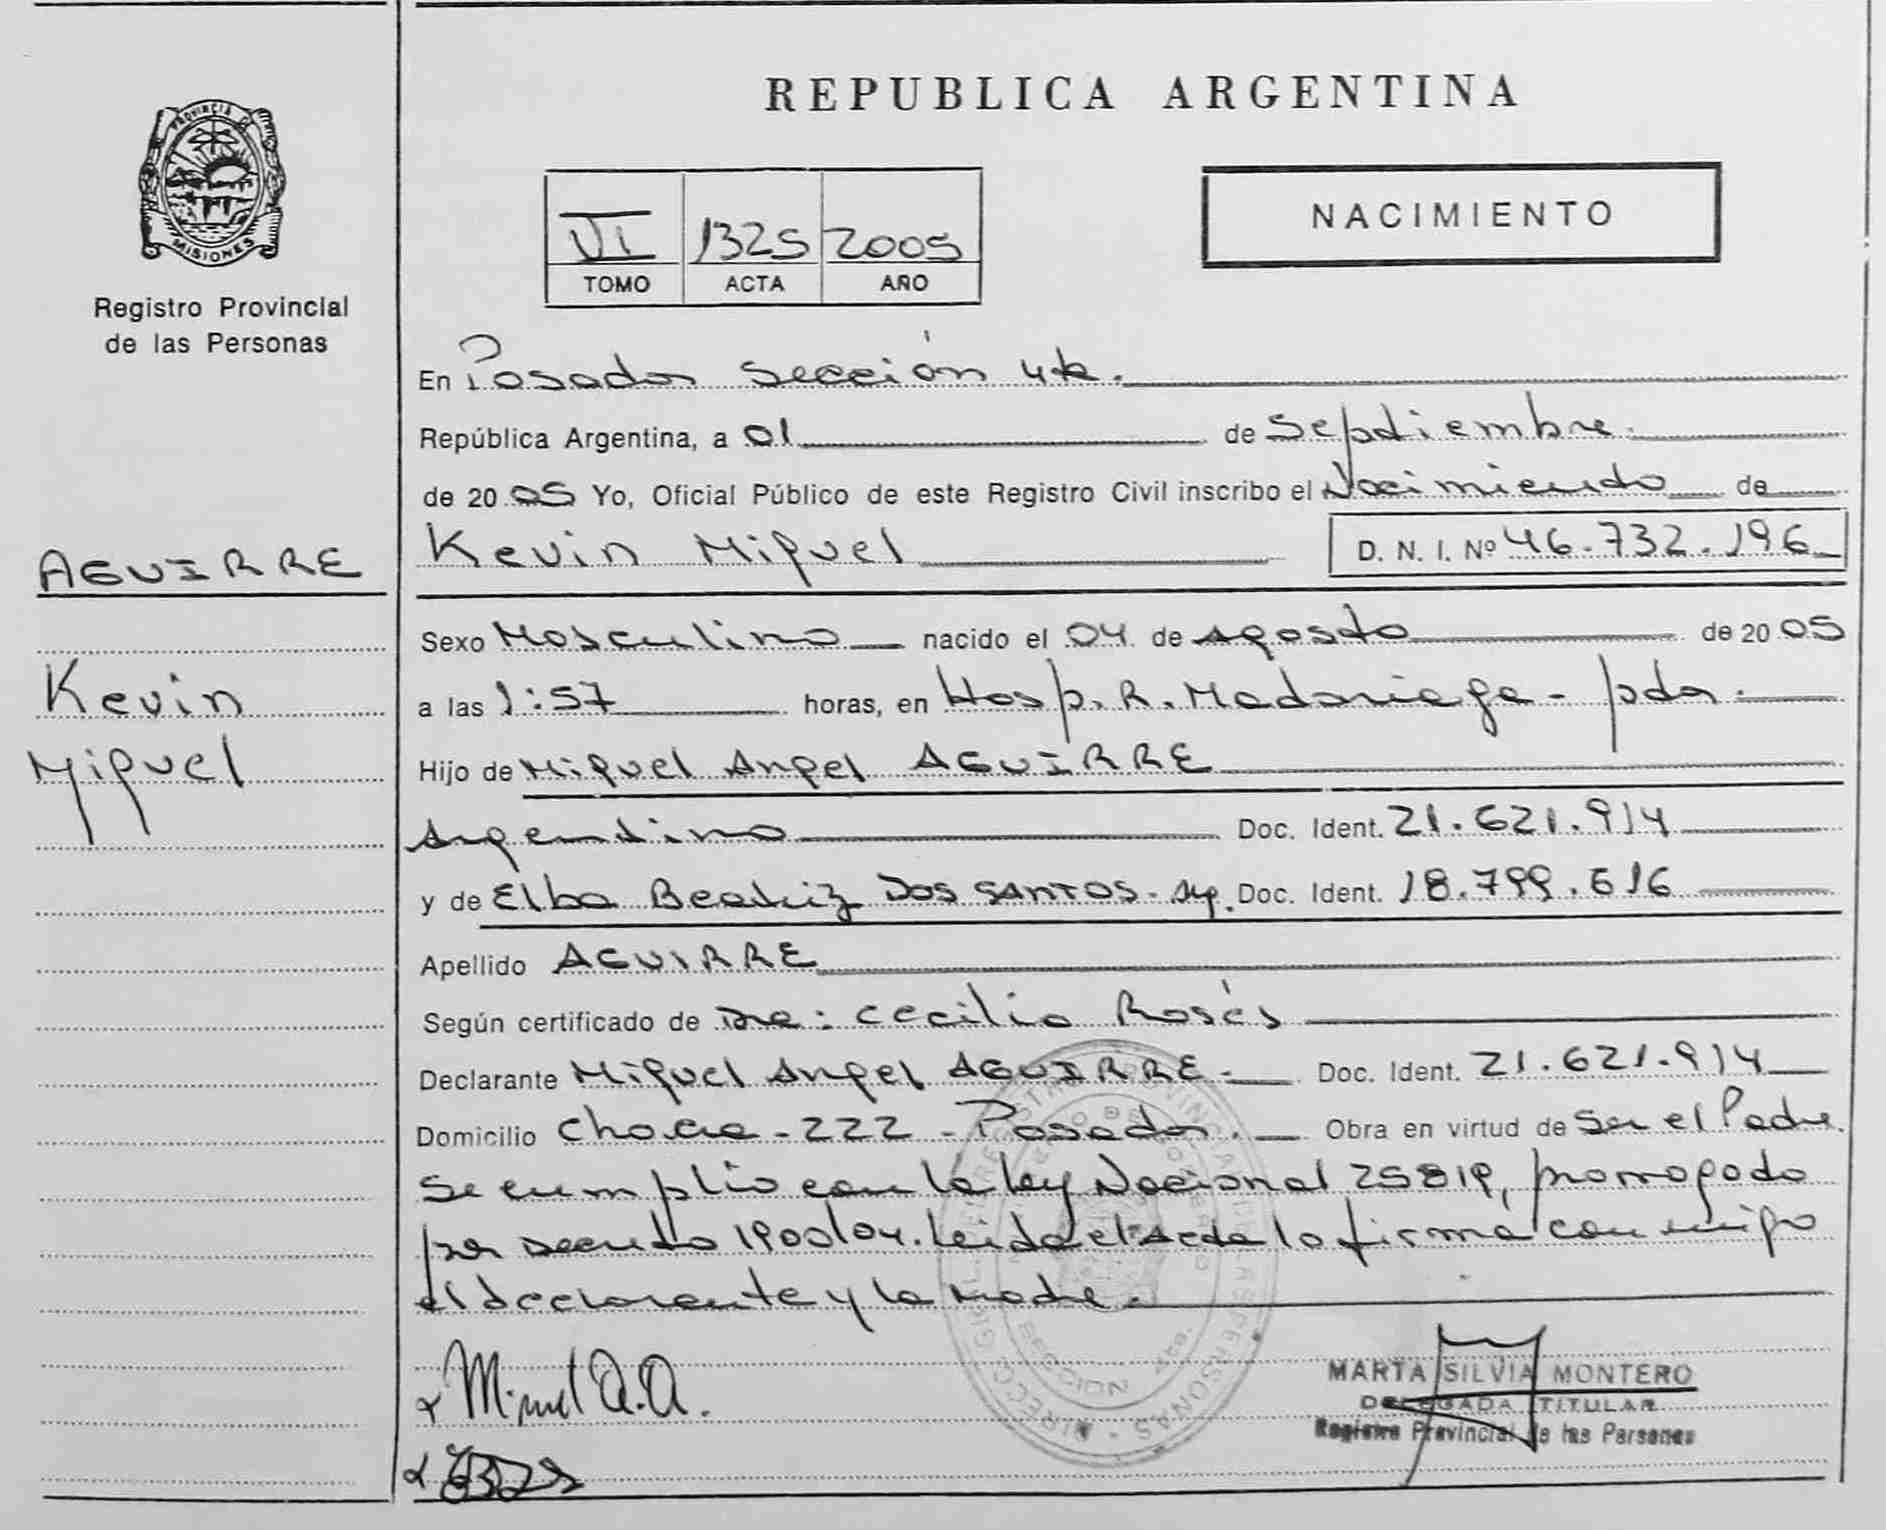 REPUBLICA ARGENTINA
PROVINCIA DE
MISIONES
Registro Provincial
de las Personas
NACIMIENTO
VI 1325 2005
TOMO ACTA AÑO
En Posadas Sección 4ta.
República Argentina, a 01 de Septiembre.
de 2005 Yo, Oficial Público de este Registro Civil inscribo el Nacimiento de
AGUIRRE
Kevin Miguel D. N. I. Nº 46.732.196
Sexo Masculino nacido el 04 de Agosto de 2005
Kevin
a las 1:57 horas, en Hosp. R. Madariaga - pdas.
Miguel
Hijo de Miguel Angel AGUIRRE
Argentino Doc. Ident. 21.621.914
y de Elba Beatriz DOS SANTOS - Arg. Doc. Ident. 18.799.616
Apellido AGUIRRE
Según certificado de Dra: Cecilia Rosés
Declarante Miguel Angel AGUIRRE - Doc. Ident. 21.621.914
Domicilio Chacra - 222 - Posadas. Obra en virtud de Ser el Padre.
Se cumplio con la Ley Nacional 25819, prorrogado
por Decreto 1900/04. Leida el Acta la firma conmigo
el declarante y la madre.
Miguel A.A.
MARTA SILVIA MONTERO
DELEGADA TITULAR
Registro Provincial de las Personas